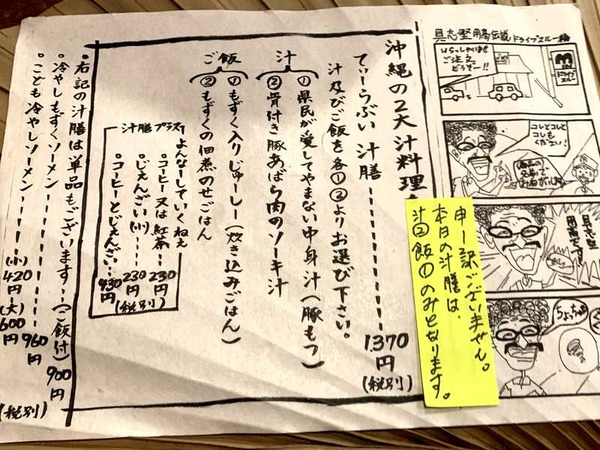 具志堅用伝説
ドライブスルー編
いらっしゃいませ
ご注文
どうぞー!!
M
ドライブ
スルー
コレとコレと
コレも
ください!
具志堅
用高です
ちょっちゅ
申し訳ございません。
本日の汁膳は、
汁②飯①のみとなります。
沖縄の2大汁料理
てぃーらぶい 汁膳 1.370円(税別)
汁及びご飯を各①②よりお選び下さい。
汁
①県民が愛してやまない中身汁(豚もつ)
②骨付き豚あばら肉のソーキ汁
ご飯
①もずく入りじゅーしー(炊き込みごはん)
②もずくの佃煮のせごはん
汁膳プラス
よんなーしていくねぇ
・コーヒー又は紅茶 230円
・じぇんがい(小) 230円
・コーヒーとじぇんがい 430円
(税別)
・右記の汁膳は単品もございます…(ご飯付) 900円
・冷やしもずくソーメン 960円
・こども冷やしソーメン (小)420円 (大)600円
(税別)